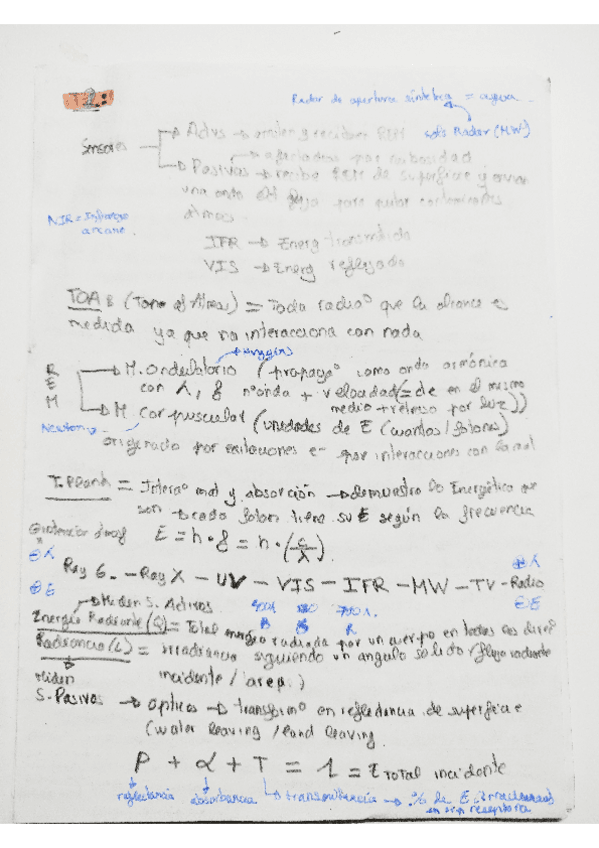 2:
Radar de apertura sintetica =
Sensores → Actvs → emiten y reciben REM solo Radar (MW)
→ afectados por nubosidad
→ Pasivos → recibe REM de superficie y
una onda EM para quitar
atmos.
NIR = Infrarrojo
cercano.
IFR → Energ transmitida
VIS → Energ reflejada
TOA: (Tome of Atmos) = Toda radia° que la alcance es
medida ya que no interacciona con nada
R E M
Huygens
→ M. ondulatorio (propaga° como onda armónica
con λ, f n°onda + velocidad (= de en el mismo
medio + veloso por luz))
→ M. Corpuscular (unidades de E (cuantos/fotones)
Newton
originado por exitaciones e- por interacciones con la mat
T. Plank = Intera° mat y absorción → demuestra lo Energética que
son → cada foton tiene su E según la frecuencia
E = h · f = h · (c/λ)
⊖ λ
⊕ E
⊕ λ
⊖ E
Ray G. - Ray X - UV - VIS - IFR - MW - TV - Radio
→ Miden S. Activos
B G R
Energía Radiante (Q) = Total energía radiada por un cuerpo en todas las direc°
Radiancia (L) = irradiancia siguiendo un angulo solido (flujo radiante
incidente / area)
Miden
S-Pasivos → opticos → transform° en reflectancia de superficie
(water leaving / land leaving
P + α + T = 1 = E total incidente
reflectancia absorbancia → transmitancia → % de E
en sup receptora